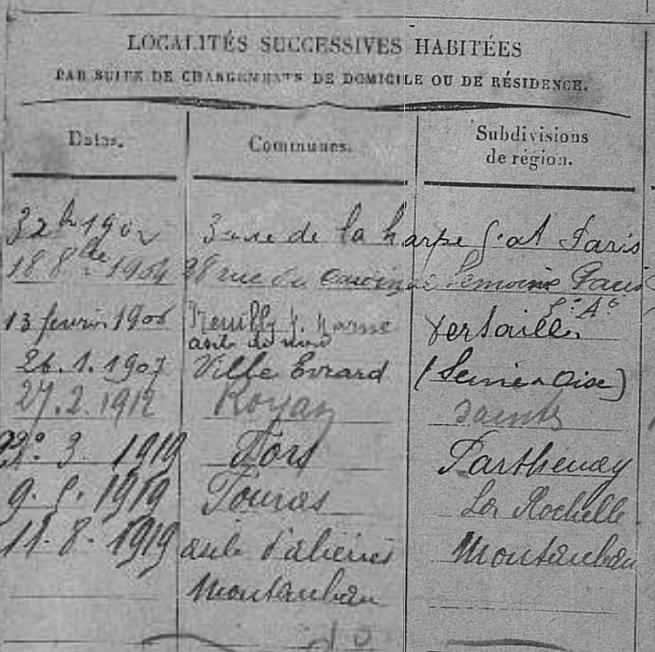 LOCALITÉS SUCCESSIVES HABITÉES
PAR SUITE DE CHANGEMENTS DE DOMICILE OU DE RÉSIDENCE.
Dates. Communes. Subdivisions de région.
1902 3 rue de la harpe Paris
18 8bre 1904 98 rue du Cardinal Lemoine Paris
13 fevrier 1906 Neuilly s. Marne Versailles
asile de
26.1.1907 Ville Evrard (Seine & Oise)
27.2.1912 Royan Saintes
3. 1919 Fors Parthenay
9. 5. 1919 Fouras La Rochelle
11. 8. 1919 asile d'aliénés Montauban
Montauban